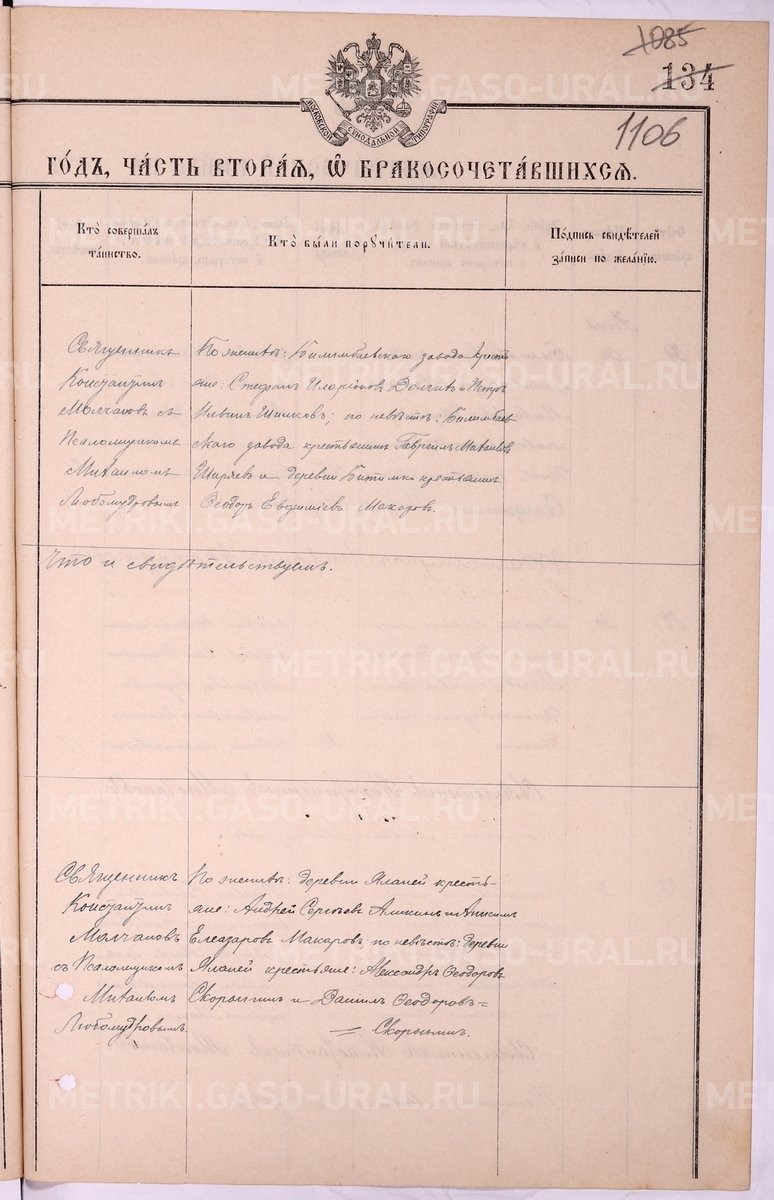 1085
134
МОСКОВСКОЙ СѴНОДАЛЬНОЙ ТИПОГРАФІИ
1106
ГО́ДЪ, ЧА́СТЬ ВТОРА́Я, Ѽ БРАКОСОЧЕТА́ВШИХСЯ.
Кто̀ соверша́лъ
та́инство.
Кто̀ бы́ли порꙋчи́тели.
По́дпись свидѣ́телей
за́писи по жела́нїю.
Священникъ
Константинъ
Молчановъ съ
Псаломщикомъ
Михаиломъ
Любомудровымъ
По женихѣ: Билимбаевскаго завода крестъ
яне: Стефанъ Иларіоновъ и Петръ
Ильинъ; по невѣстѣ: Билимбаев
скаго завода крестьянинъ Гавріилъ Михаиловъ
Ширяевъ и деревни Битимки крестьянинъ
Ѳеодоръ Евфиміевъ Макаровъ.
Что и свидѣтельствуемъ.
Священникъ
Константинъ
Молчановъ
съ Псаломщикомъ
Михаиломъ
Любомудровымъ.
По женихѣ: деревни крестъ-
яне: Андрей Сергѣевъ и Анисимъ
Елеазаровъ Макаровъ; по невѣстѣ: деревни
крестьяне: Александръ Ѳеодоровъ
Скорынинъ и Даніилъ Ѳеодоровъ=
= Скорынинъ.
METRIKI.GASO-URAL.RU